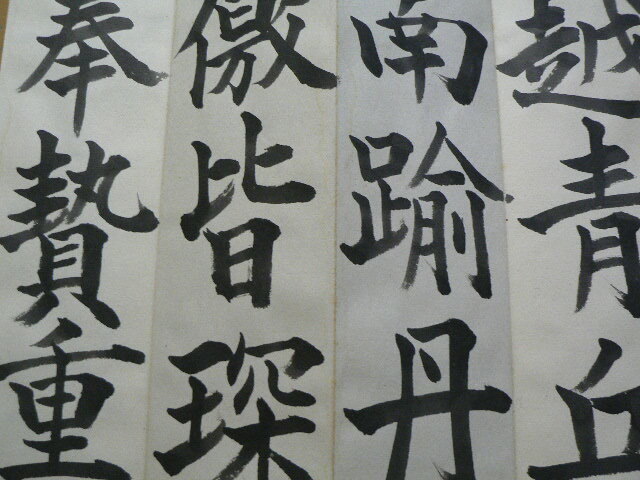 越青丘
南踰丹
徼皆琛
奉贄重